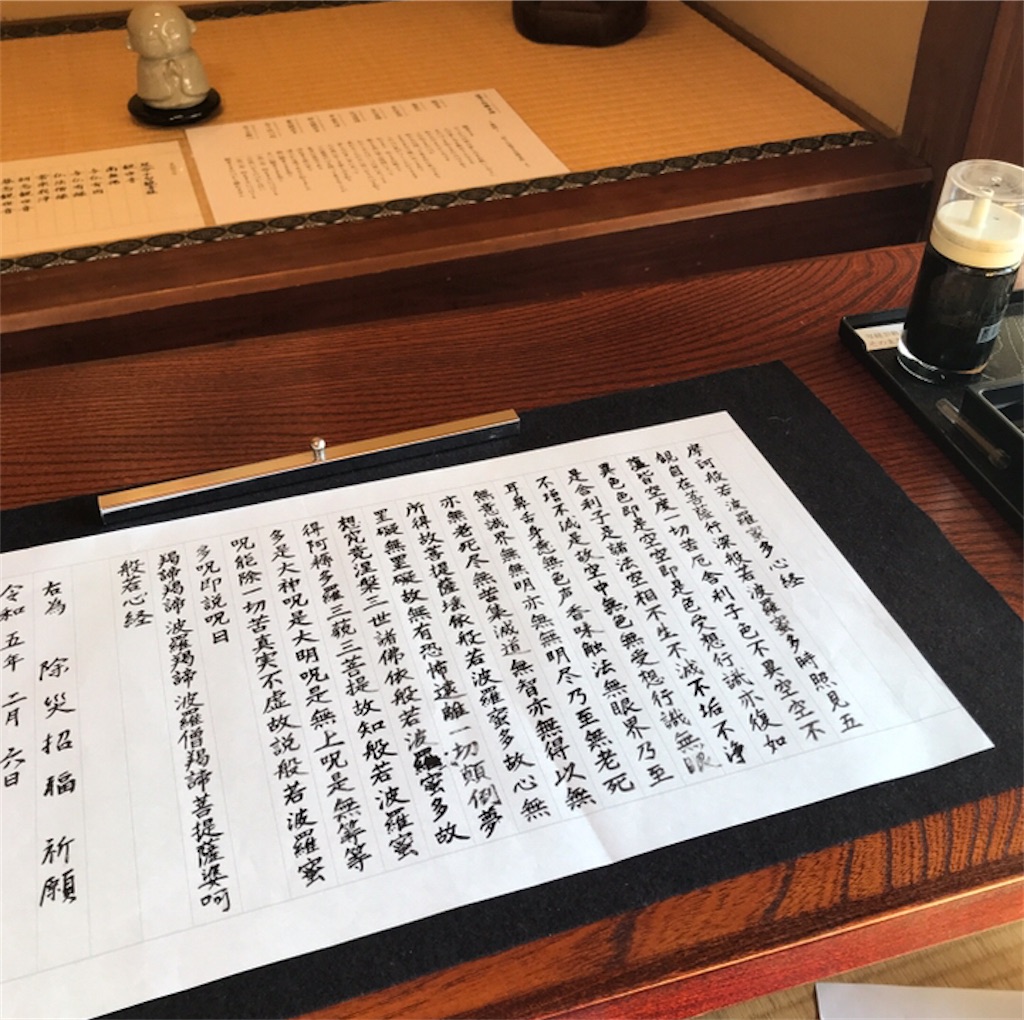 観世音
南無佛
与仏有因
与仏有縁
仏法僧縁
常楽我浄
朝念観世音
暮念観世音
摩訶般若波羅蜜多心経
観自在菩薩行深般若波羅蜜多時照見五
蘊皆空度一切苦厄舎利子色不異空空不
異色色即是空空即是色受想行識亦復如
是舎利子是諸法空相不生不滅不垢不浄
不増不減是故空中無色無受想行識無眼
耳鼻舌身意無色声香味触法無眼界乃至
無意識界無無明亦無無明尽乃至無老死
亦無老死尽無苦集滅道無智亦無得以無
所得故菩提薩埵依般若波羅蜜多故心無
罣礙無罣礙故無有恐怖遠離一切顛倒夢
想究竟涅槃三世諸佛依般若波羅蜜多故
得阿耨多羅三藐三菩提故知般若波羅蜜
多是大神呪是大明呪是無上呪是無等等
呪能除一切苦真実不虚故説般若波羅蜜
多呪即説呪曰
羯諦羯諦 波羅羯諦 波羅僧羯諦 菩提薩婆訶
般若心経
右為 除災招福 祈願
令和五年 二月 六日